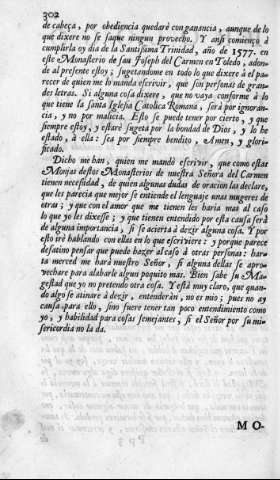 302
de cabeça, por obediencia quedarè con ganancia, aunque de lo
que dixere no se saque ningun provecho. Y ansi començo à
cumplirla oy dia de la Santissima Trinidad, año de 1577. en
este Monasterio de san Joseph del Carmen en Toledo, adon-
de al presente estoy; sugetandome en todo lo que dixere à el pa-
recer de quien me lo manda escrivir, que son personas de gran-
des letras. Si alguna cosa dixere, que no vaya conforme à lo
que tiene la santa Iglesia Catolica Romana, serà por ignoran-
cia, y no por malicia. Esto se puede tener por cierto, y que
siempre estoy, y estarè sugeta por la bondad de Dios, y lo he
estado, à ella: sea por siempre bendito, Amen, y glori-
ficado.
Dicho me han, quien me mandò escrivir, que como estas
Monjas destos Monasterios de nuestra Señora del Carmen
tienen necessidad, de quien algunas dudas de oracion las declare,
que les parecia que mejor se entiende el lenguaje unas mugeres de
otras; y que con el amor que me tienen les haria mas al caso
lo que yo les dixesse; y que tienen entendido por esta causa serà
de alguna importancia, si se acierta à dezir alguna cosa. Y por
esto irè hablando con ellas en lo que escriviere: y porque parece
desatino pensar que puede hazer al caso à otras personas: har-
ta merced me harà nuestro Señor, si alguna dellas se apro-
vechare para alabarle algun poquito mas. Bien sabe su Ma-
gestad que yo no pretendo otra cosa. Y està muy claro, que quan-
do algo se atinare à dezir, entenderàn, no es mio; pues no ay
causa para ello, sino fuere tener tan poco entendimiento como
yo, y habilidad para cosas semejantes, si el Señor por su mi-
sericordia no la da.
MO-